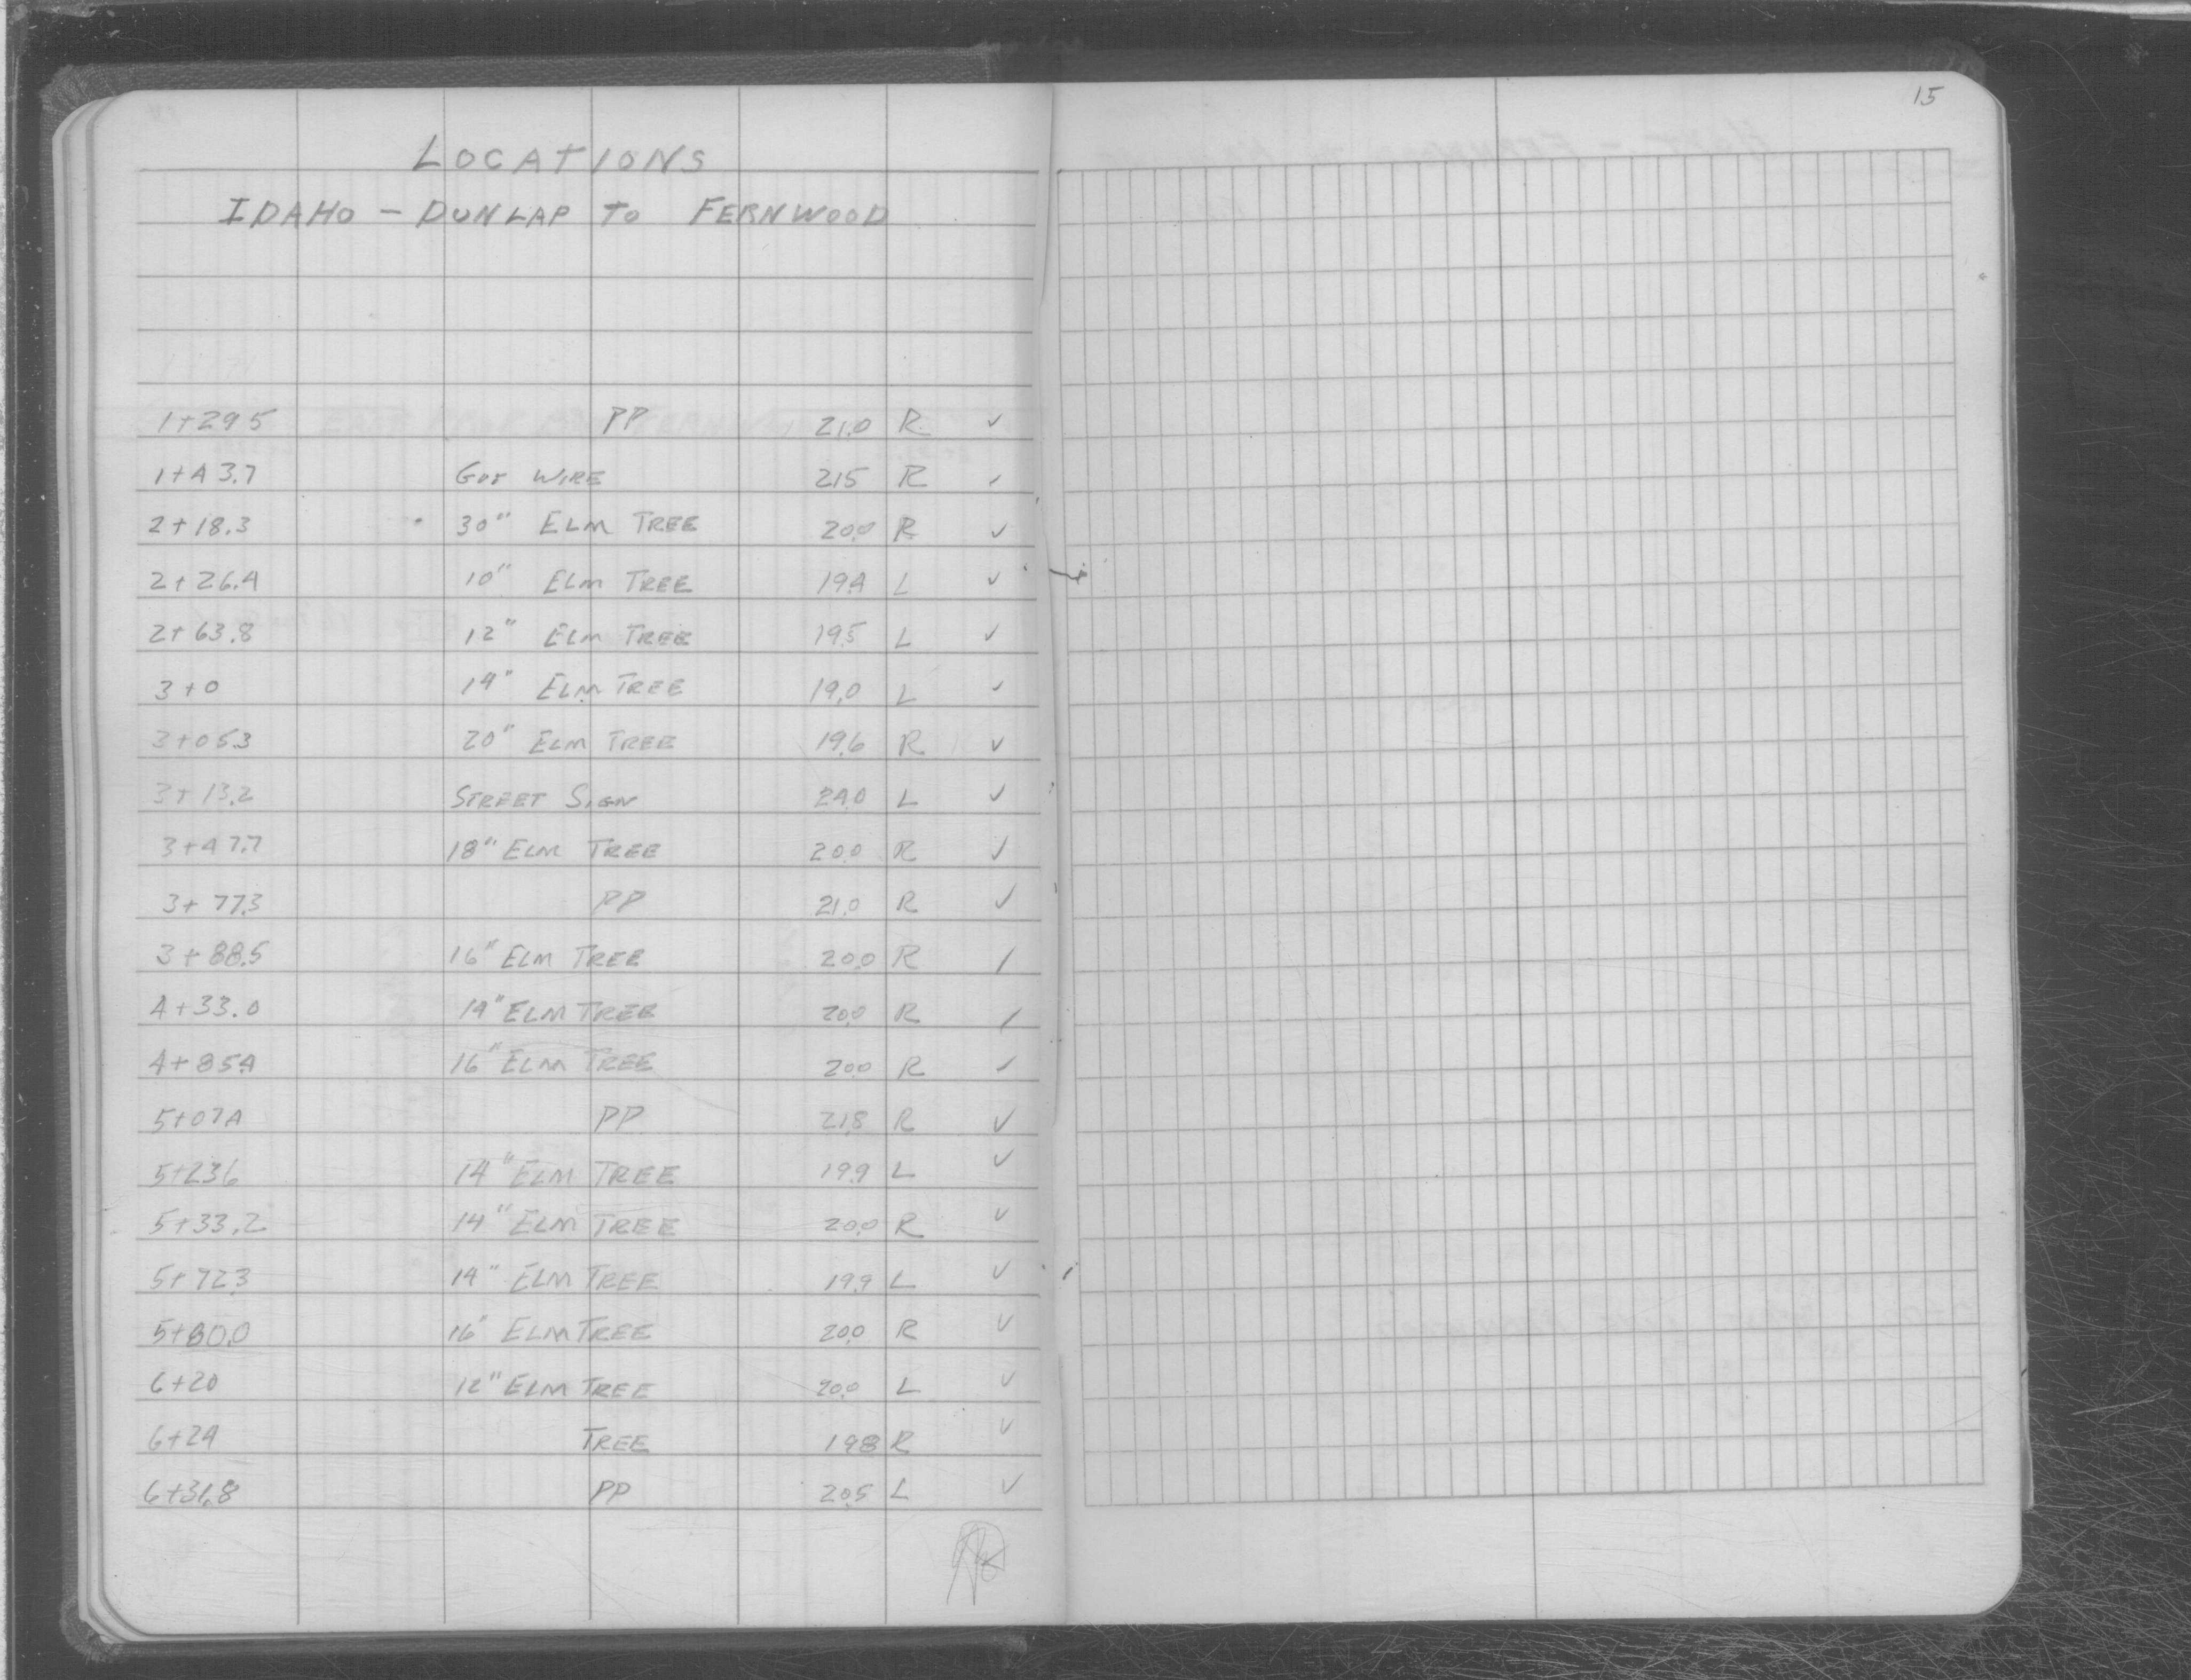 15
LOCATIONS
IDAHO - DUNLAP TO FERNWOOD
1+29.5 PP 21.0 R ✓
1+43.7 GUY WIRE 21.5 R ✓
2+18.3 30" ELM TREE 20.0 R ✓
2+26.4 10" ELM TREE 19.4 L ✓
2+63.8 12" ELM TREE 19.5 L ✓
3+0 14" ELM TREE 19.0 L ✓
3+05.3 20" ELM TREE 19.6 R ✓
3+13.2 STREET SIGN 24.0 L ✓
3+47.7 18" ELM TREE 20.0 R ✓
3+77.3 PP 21.0 R ✓
3+88.5 16" ELM TREE 20.0 R ✓
4+33.0 14" ELM TREE 20.0 R ✓
4+85.4 16" ELM TREE 20.0 R ✓
5+07.4 PP 21.8 R ✓
5+23.6 14" ELM TREE 19.9 L ✓
5+33.2 14" ELM TREE 20.0 R ✓
5+72.3 14" ELM TREE 19.9 L ✓
5+80.0 16" ELM TREE 20.0 R ✓
6+20 12" ELM TREE 20.0 L ✓
6+24 TREE 19.8 R ✓
6+31.8 PP 20.5 L ✓